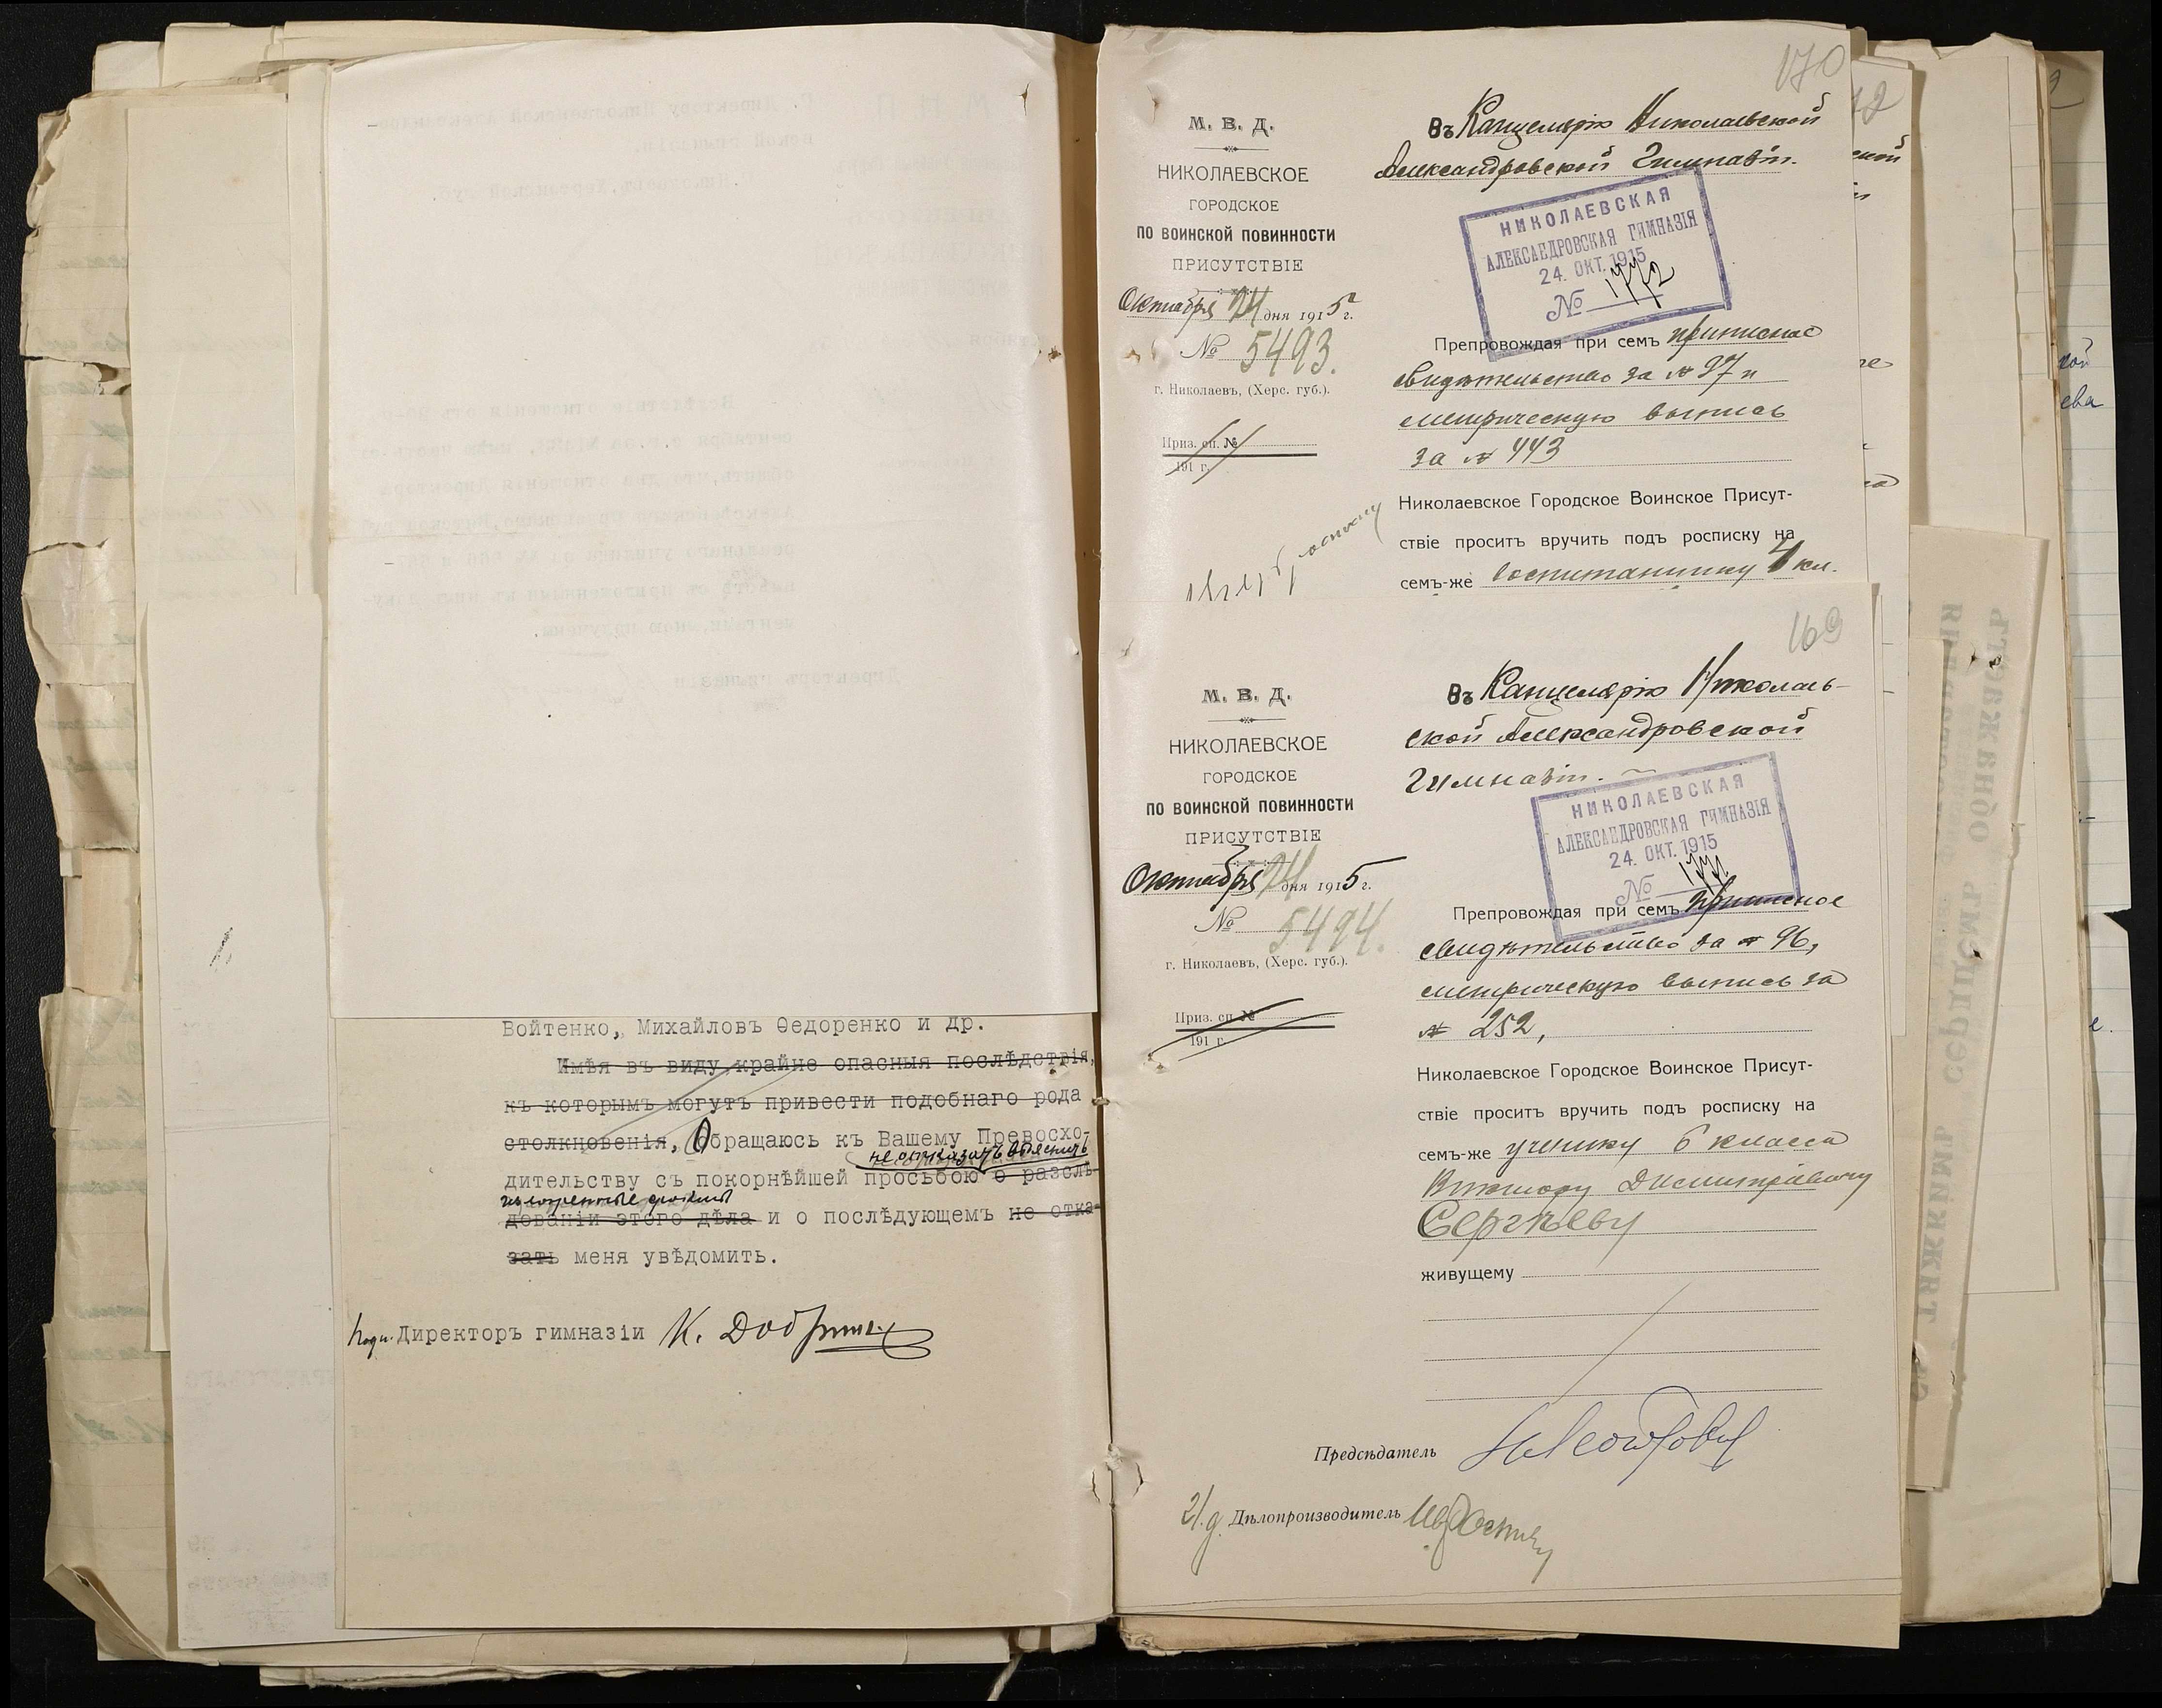 Войтенко, Михайловъ Ѳедоренко и др.
Имѣя въ виду крайне опасныя послѣдствія,
къ которымъ могутъ привести подобнаго рода
столкновенія, Обращаюсь къ Вашему Превосхо-
не отказать выяснить
дительству съ покорнѣйшей просьбою о разслѣ-
изложенные факты
дованіи этого дѣла и о послѣдующемъ не отка-
зать меня увѣдомить.
Подп. Директоръ гимназіи К. Добр
170
М. В. Д.
НИКОЛАЕВСКОЕ
ГОРОДСКОЕ
ПО ВОИНСКОЙ ПОВИННОСТИ
ПРИСУТСТВІЕ
Октября 24 дня 1915 г.
№ 5493.
г. Николаевъ, (Херс. губ.).
Приз. сп. №
191 г.
Въ Канцелярію Николаевской
Александровской Гимназіи.
НИКОЛАЕВСКАЯ
АЛЕКСАНДРОВСКАЯ ГИМНАЗІЯ
24. ОКТ. 1915
№ 1772
Препровождая при семъ приписное
свидѣтельство за № 97 и
метрическую выпись
за № 443
Николаевское Городское Воинское Присут-
ствіе проситъ вручить подъ росписку на
семъ-же воспитаннику 4 кл.
169
М. В. Д.
НИКОЛАЕВСКОЕ
ГОРОДСКОЕ
ПО ВОИНСКОЙ ПОВИННОСТИ
ПРИСУТСТВІЕ
Октября 24 дня 1915 г.
№ 5494.
г. Николаевъ, (Херс. губ.).
Приз. сп. №
191 г.
Въ Канцелярію Николаев-
ской Александровской
Гимназіи.
НИКОЛАЕВСКАЯ
АЛЕКСАНДРОВСКАЯ ГИМНАЗІЯ
24. ОКТ. 1915
№ 1771
Препровождая при семъ приписное
свидѣтельство за № 96,
метрическую выпись за
№ 252,
Николаевское Городское Воинское Присут-
ствіе проситъ вручить подъ росписку на
семъ-же ученику 6 класса
Виктору Димитріевичу
Сергѣеву
живущему
Предсѣдатель
И.д. Дѣлопроизводитель